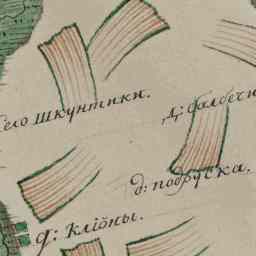 село шкунтики.
д; балбечи
д: подруска.
д: клїоны.